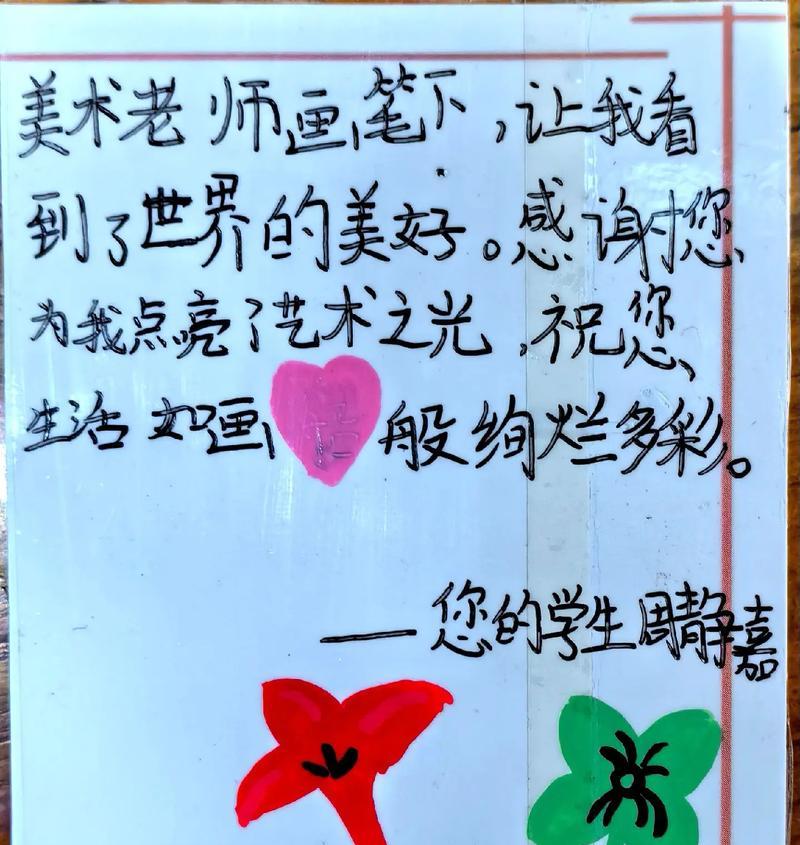 美术老师画笔下,让我看
到了世界的美好。感谢您
为我点亮了艺术之光,祝您
生活如画般绚烂多彩。
——您的学生周静嘉